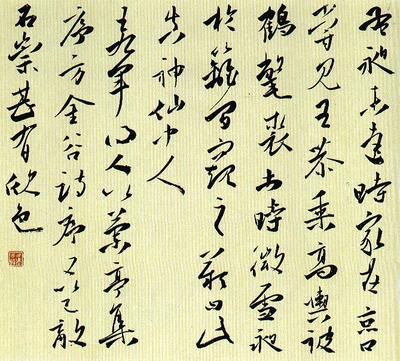 孟昶未達時家在京口
嘗見王恭乘高輿被
鶴氅裘于時微雪昶
於籬間窺之歎曰此
真神仙中人
右軍得人以蘭亭集
序方金谷詩序又以己敵
石崇甚有欣色